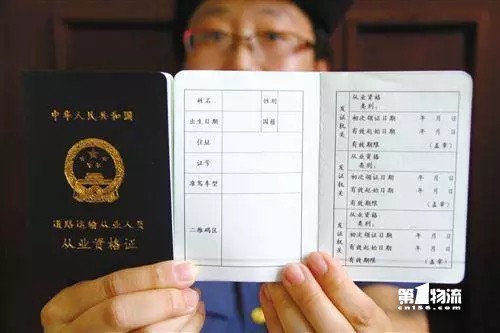 中华人民共和国
道路运输从业人员
从业资格证
姓名 性别
出生日期 国籍
住址
证号
准驾车型
二维码区
从业资格
类别:
发证机关
初次领证日期 年 月 日
有效起始日期 年 月 日
有效期限 (盖章)
从业资格
类别:
发证机关
初次领证日期 年 月 日
有效起始日期 年 月 日
有效期限 (盖章)
从业资格
类别:
发证机关
初次领证日期 年 月 日
有效起始日期 年 月 日
有效期限 (盖章)
第1物流
cn156.com